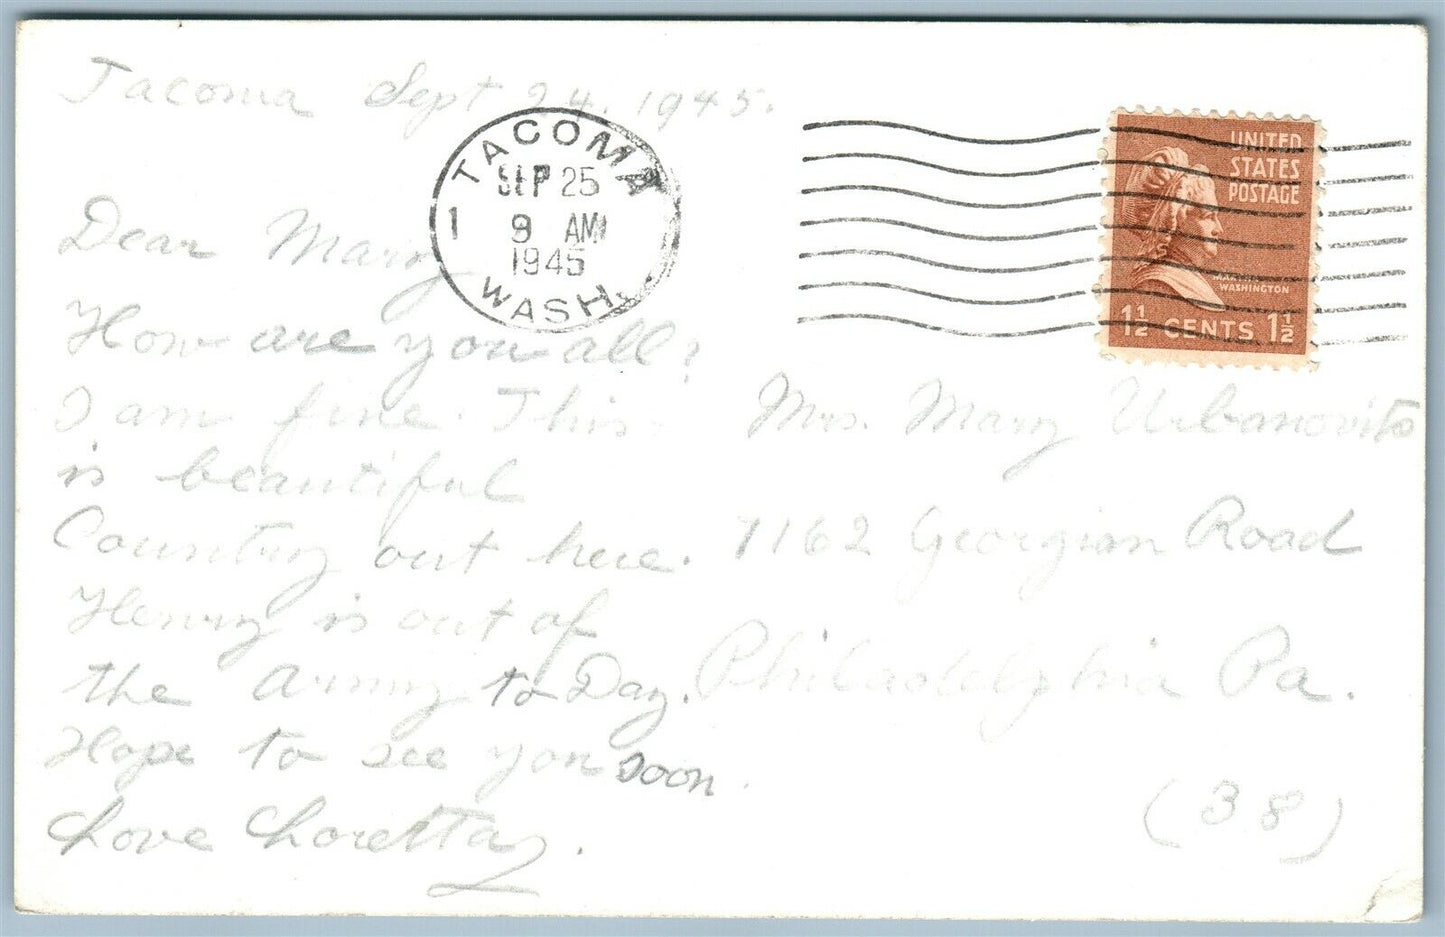 Tacoma Sept 24. 1945.
TACOMA
SEP 25
1 9 AM
1945
WASH.
UNITED
STATES
POSTAGE
WASHINGTON
1½ CENTS 1½
Dear Mary
How are you all?
I am fine. This
is beautiful
Country out here.
Henry is out of
the Army to Day.
Hope to see you soon.
Love Loretta.
Mrs. Mary
7162 Georgian Road
Philadelphia Pa.
(38)